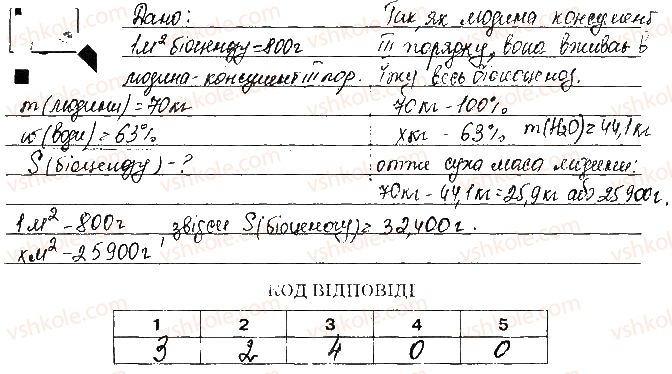 Дано:
1м² біоценозу=800г
людина-консумент ІІІ пор.
m(людини)=70кг
ω(води)=63%
S(біоценозу)-?
Так, як людина консумент
ІІІ порядку, вона вживає в
їжу весь біоценоз.
70кг-100%
хкг - 63% m(H₂O)=44,1кг
отже суха маса людини:
70кг-44,1кг=25,9кг або 25900г.
1м²-800г звідси S(біоценозу)=32,400г.
хм²-25900г,
КОД ВІДПОВІДІ
1 2 3 4 5
3 2 4 0 0
vshkole.com